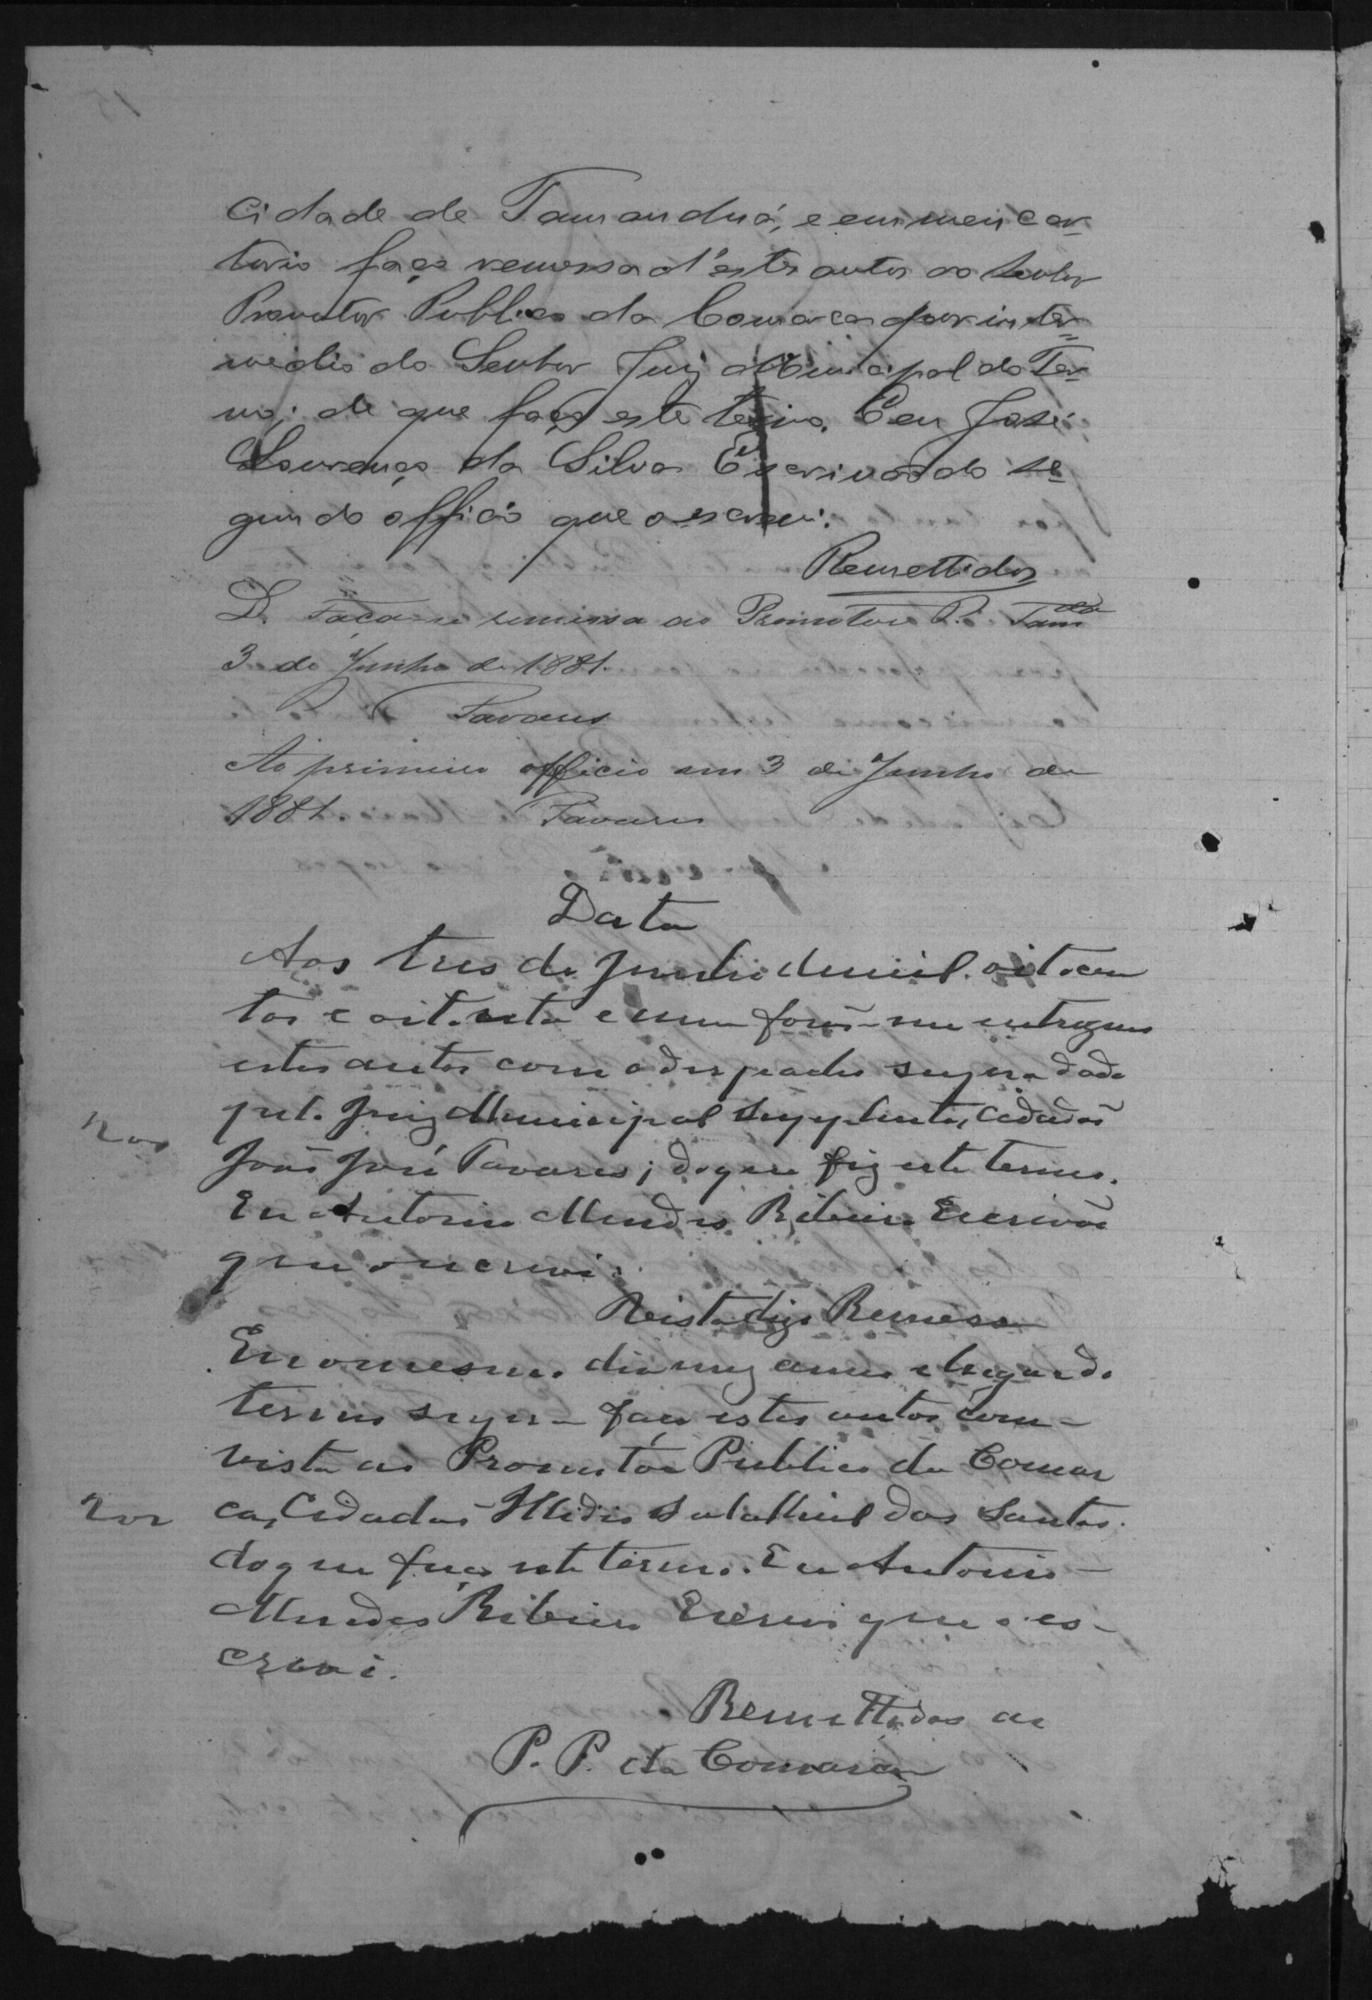 Cidade de Tamanduá, e em meu car-
torio faço remessa d'estes autos ao Senhor
Promotor Publico da Comarca por inter-
medio do Senhor Juiz Municipal do Ter-
mo; de que faço este termo. Eu José
Lourenço da Silva Escrivão do se-
gundo officio que o escrevi.
Remettidos
D. Faça-se remessa ao Promotor P. Tam.dá
3 de Junho de 1881.
Tavares
Ao primeiro officio em 3 de Junho de
1881. Tavares
Data
Aos tres de Junho de mil oitocen
tos e oitenta e um forão-me entregues
estes autos com o despacho supra dado
pelo Juiz Municipal Supplente, Cidadão
João José Tavares; do que fiz este termo.
Eu Antonio Mendes Ribeiro Escrivão
que o escrevi.
Vista digo Remessa
E no mesmo dia mez anno e lugar do
termo supra faço estes autos com-
vista ao Promotor Publico da Comar
ca, Cidadão dos Santos
do que faço este termo. Eu Antonio
Mendes Ribeiro Escrivão que o es-
crevi.
Remettidos ao
P. P. da Comarca